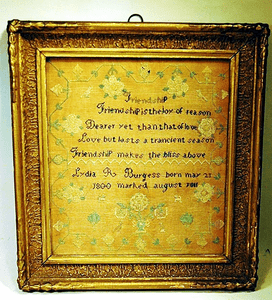 Friendship
Friendship is the Joy of reason
Dearer yet than that of love
Love but lasts a trancient season
Friendship makes the bliss above
Lydia R Burgess born may 22
1800 marked august 1811